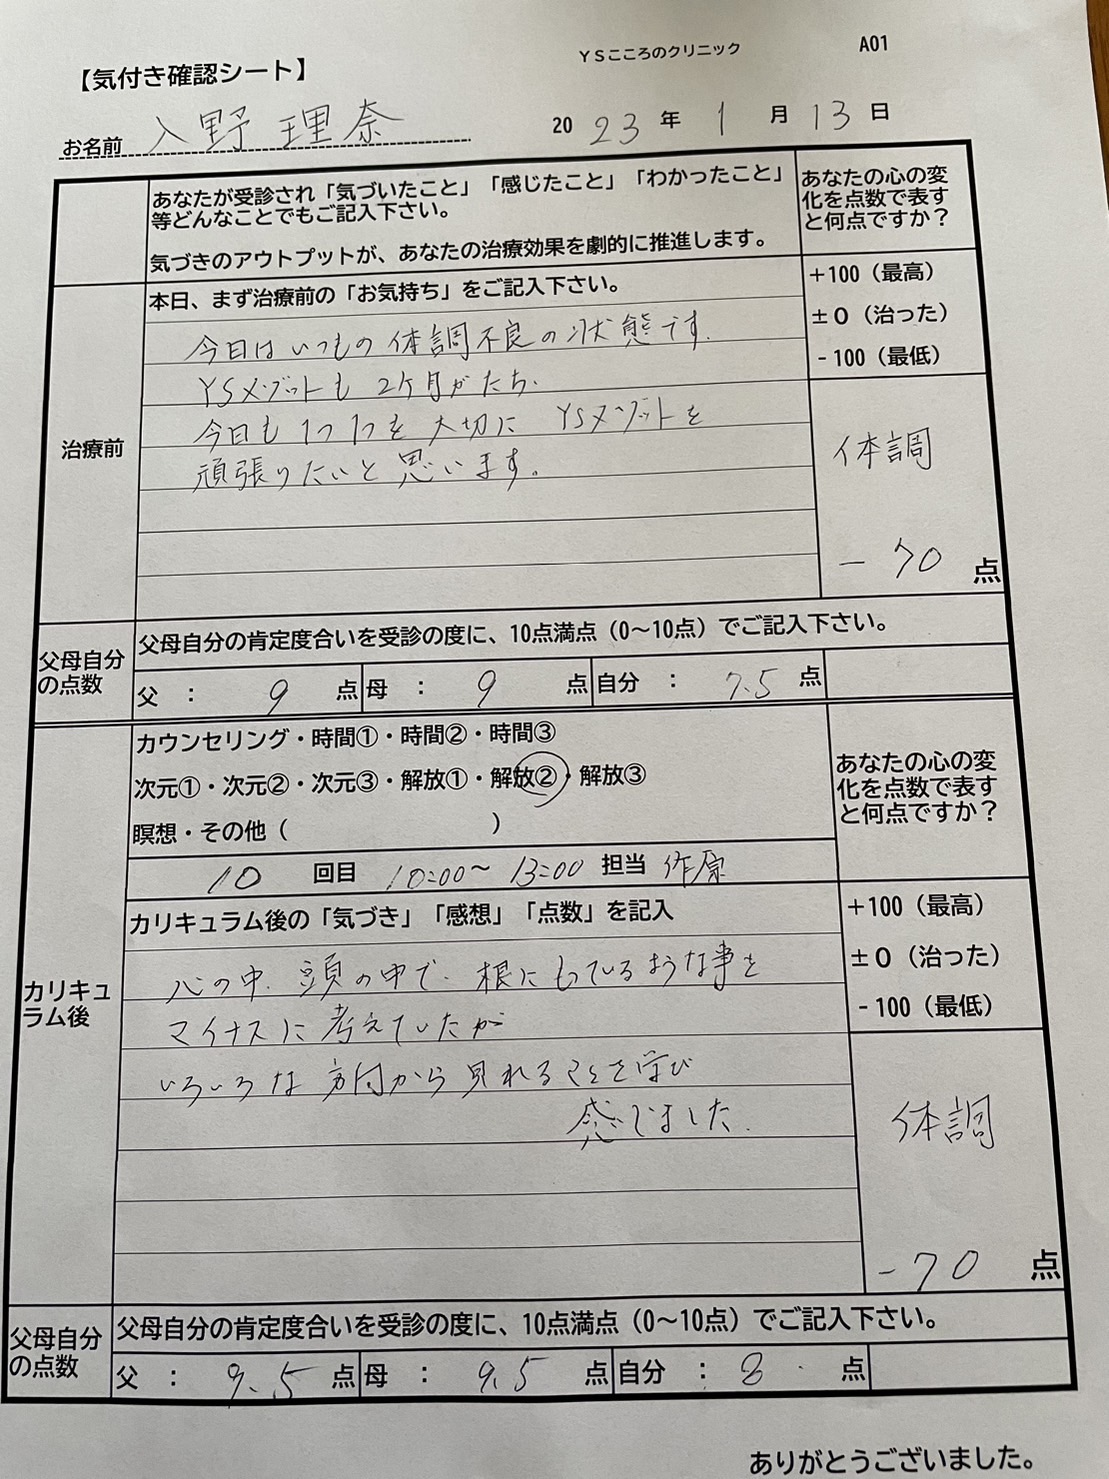 YSこころのクリニック A01
【気付き確認シート】
お名前 入野 理奈 2023年1月13日
あなたが受診され「気づいたこと」「感じたこと」「わかったこと」
等どんなことでもご記入下さい。
気づきのアウトプットが、あなたの治療効果を劇的に推進します。
あなたの心の変
化を点数で表す
と何点ですか？
治療前
本日、まず治療前の「お気持ち」をご記入下さい。
今日はいつもの体調不良の状態です.
YSメゾットも2ヶ月がたち、
今日も1つ1つを大切にYSメゾットを
頑張りたいと思います。
+100（最高）
±0（治った）
-100（最低）
体調
-70 点
父母自分
の点数
父母自分の肯定度合いを受診の度に、10点満点（0～10点）でご記入下さい。
父 ： 9 点 母 ： 9 点 自分 ： 7.5 点
カリキュ
ラム後
カウンセリング・時間①・時間②・時間③
次元①・次元②・次元③・解放①・解放②・解放③
瞑想・その他（ ）
10 回目 10:00～13:00 担当 作原
あなたの心の変
化を点数で表す
と何点ですか？
カリキュラム後の「気づき」「感想」「点数」を記入
心の中、頭の中で、根にもっているような事を
マイナスに考えていたが
いろいろな方向から見れることを学び
感じました.
+100（最高）
±0（治った）
-100（最低）
体調
-70 点
父母自分
の点数
父母自分の肯定度合いを受診の度に、10点満点（0～10点）でご記入下さい。
父 ： 9.5 点 母 ： 9.5 点 自分 ： 8 点
ありがとうございました。